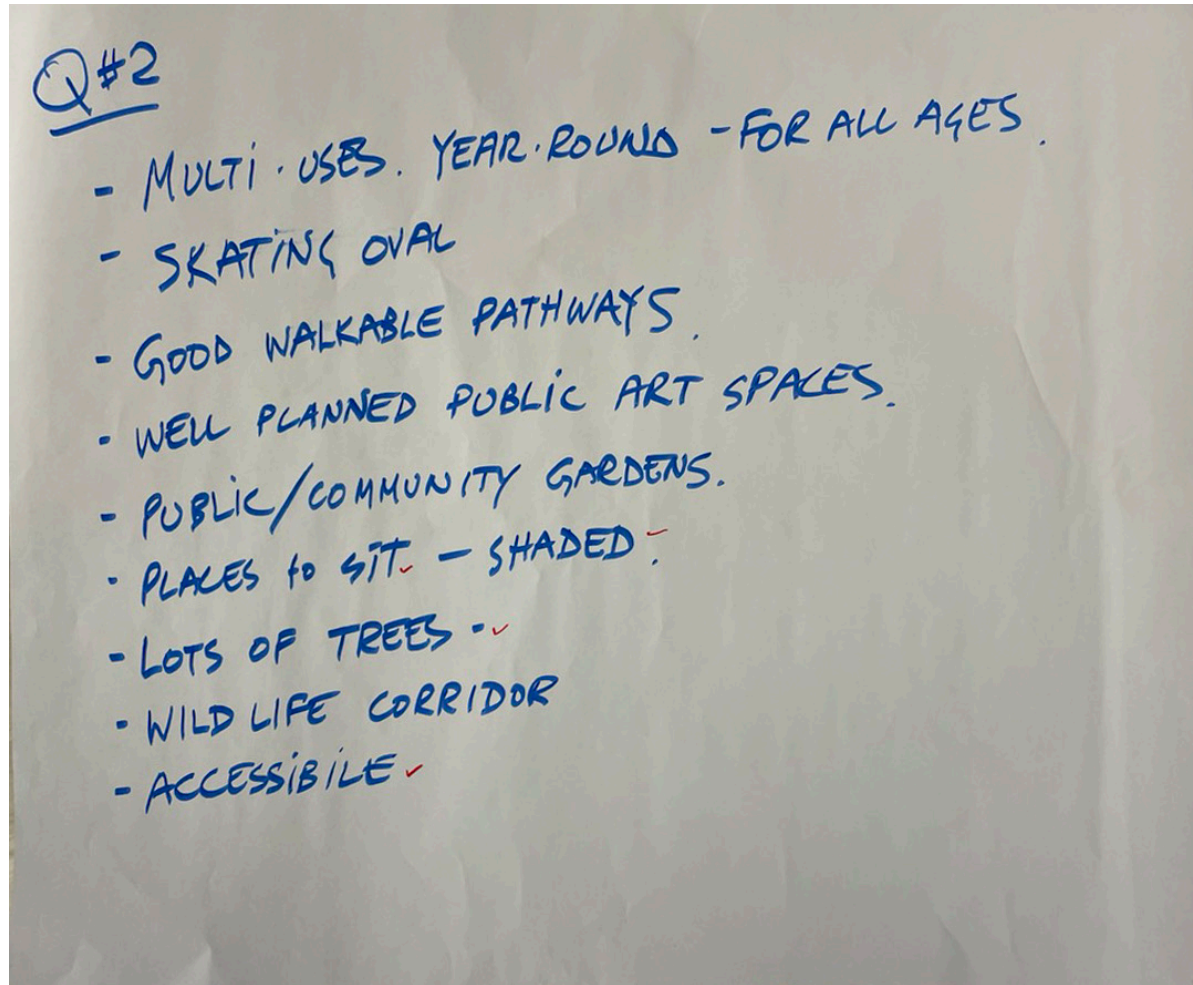 Q#2
- MULTI·USES. YEAR·ROUND - FOR ALL AGES.
- SKATING OVAL
- GOOD WALKABLE PATHWAYS.
- WELL PLANNED PUBLIC ART SPACES.
- PUBLIC/COMMUNITY GARDENS.
- PLACES to SIT. - SHADED.
- LOTS OF TREES -
- WILD LIFE CORRIDOR
- ACCESSIBILE